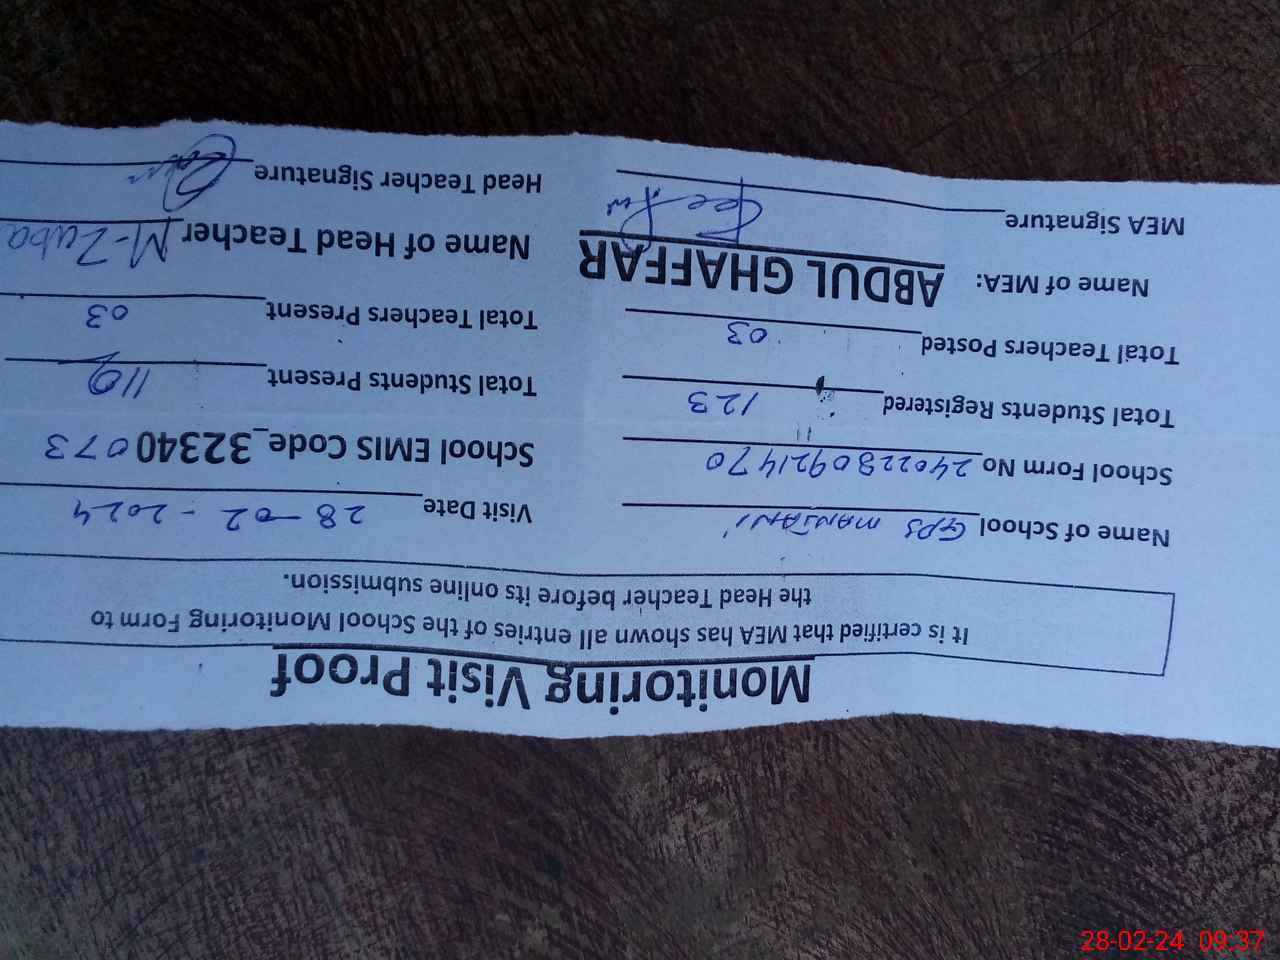 Monitoring Visit Proof
It is certified that MEA has shown all entries of the School Monitoring Form to
the Head Teacher before its online submission.
Name of School GPS MANJANI Visit Date 28-02-2024
School Form No 24022809921470 School EMIS Code_32340073
Total Students Registered 123 Total Students Present 110
Total Teachers Posted 03 Total Teachers Present 03
Name of MEA: ABDUL GHAFFAR Name of Head Teacher M-Zuba
MEA Signature Head Teacher Signature
28-02-24 09:37